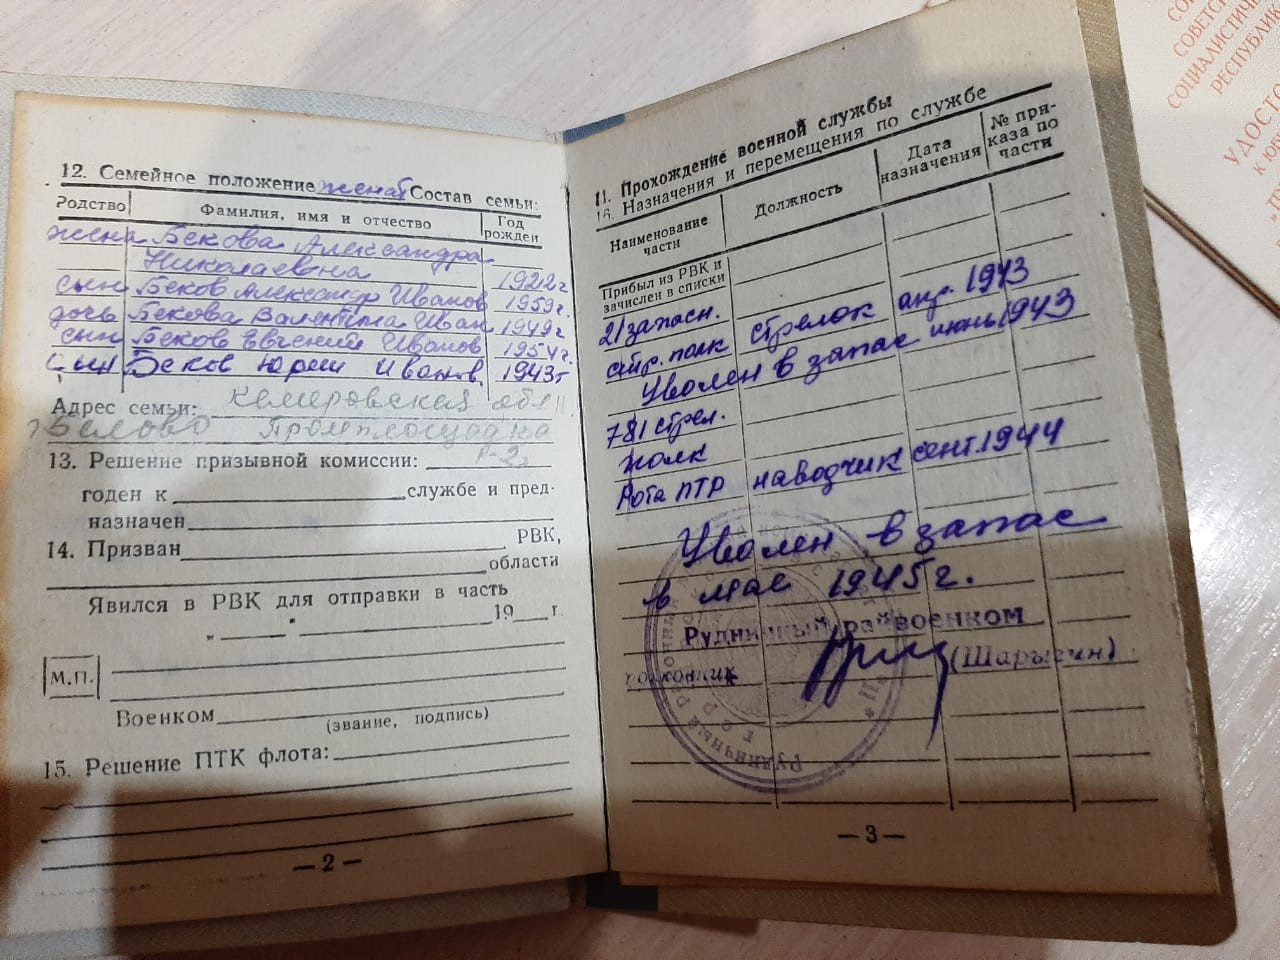 12. Семейное положение женат Состав семьи:
Родство Фамилия, имя и отчество Год рожден.
жена Бекова Александра
Николаевна 1922 г
сын Беков Александр Иванов 1959 г.
дочь Бекова Валентина Иван 1949 г
сын Беков Евгений Иванов 1954 г.
сын Беков Юрий Иванов. 1943 г
Адрес семьи: Кемеровская обл
г Белово Промплощадка
13. Решение призывной комиссии:
годен к службе и пред-
назначен
14. Призван РВК,
области
Явился в РВК для отправки в часть
„ " 19 г.
М.П.
Военком
(звание, подпись)
15. Решение ПТК флота:
— 2 —
11. Прохождение военной службы
16. Назначения и перемещения по службе
Наименование части Должность Дата назначения № при-каза по части
Прибыл из РВК и
зачислен в списки
21 запасн.
стр. полк стрелок апр. 1943
Уволен в запас июнь 1943
781 стрел.
полк
Рота ПТР наводчик сент. 1944
Уволен в запас
в мае 1945 г.
Рудничный райвоенком
полковник (Шарыгин)
— 3 —
СОВЕТСК
СОЦИАЛИСТИЧ
РЕСПУБЛИК
УДОСТО
К ЮБ